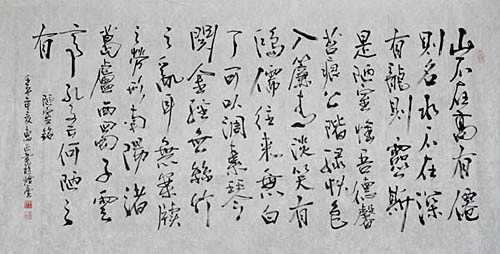 山不在高有僊
則名水不在深
有龍則靈斯
是陋室惟吾德馨
苔痕上階緑草色
入簾青談笑有
鴻儒往来無白
丁可以調素琴
閲金經無絲竹
之亂耳無案牘
之勞形南陽諸
葛廬西蜀子雲
亭孔子云何陋之
有
陋室銘